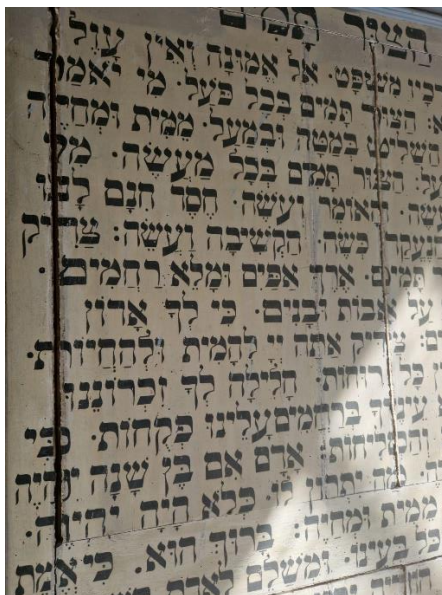 הַצּוּר תָּמִים
מִשְׁפָּט. אֵל אֱמוּנָה וְאֵין עָוֶל
הַצּוּר תָּמִים בְּכָל פֹּעַל מִי יֹאמַר
הַשַּׁלִּיט בְּמַטָּה וּבְמַעַל. מֵמִית וּמְחַיֶּה
הַצּוּר תָּמִים בְּכָל מַעֲשֶׂה. מִי
הָאוֹמֵר וְעֹשֶׂה. חֶסֶד חִנָּם לָנוּ
וְנֶעֱקַד כַּשֶּׂה. הַקְשִׁיבָה וַעֲשֵׂה: צַדִּיק
תָּמִים. אֶרֶךְ אַפַּיִם וּמָלֵא רַחֲמִים.
עַל אָבוֹת וּבָנִים. כִּי לְךָ אָדוֹן
צַדִּיק אַתָּה יְיָ לְהָמִית וּלְהַחֲיוֹת.
כָּל רוּחוֹת. חָלִילָה לְךָ זִכְרוֹנֵנוּ
בְּרַחֲמִים עָלֵינוּ פְּקֻחוֹת. כִּי
וְהַסְּלִיחוֹת: אָדָם אִם בֶּן שָׁנָה יִהְיֶה
מַה יִּתְרוֹן לוֹ כְּלֹא הָיָה יִהְיֶה.
מֵמִית וּמְחַיֶּה: בָּרוּךְ הוּא. כִּי אֱמֶת
כָל בְּעֵינוֹ. וּמְשַׁלֵּם לְאָדָם